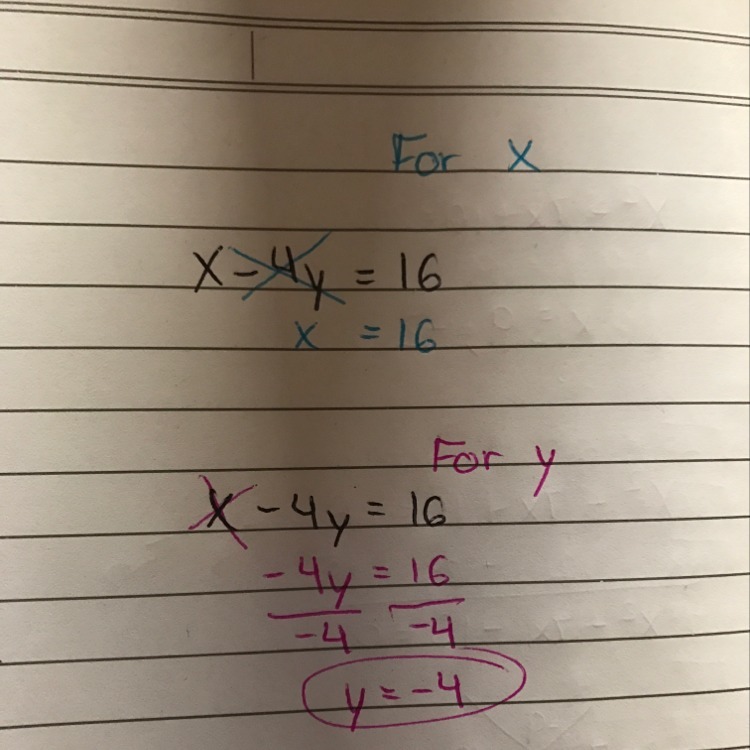 For x
x - 4y = 16
x = 16
For y
x - 4y = 16
-4y = 16
-4 -4
y = -4